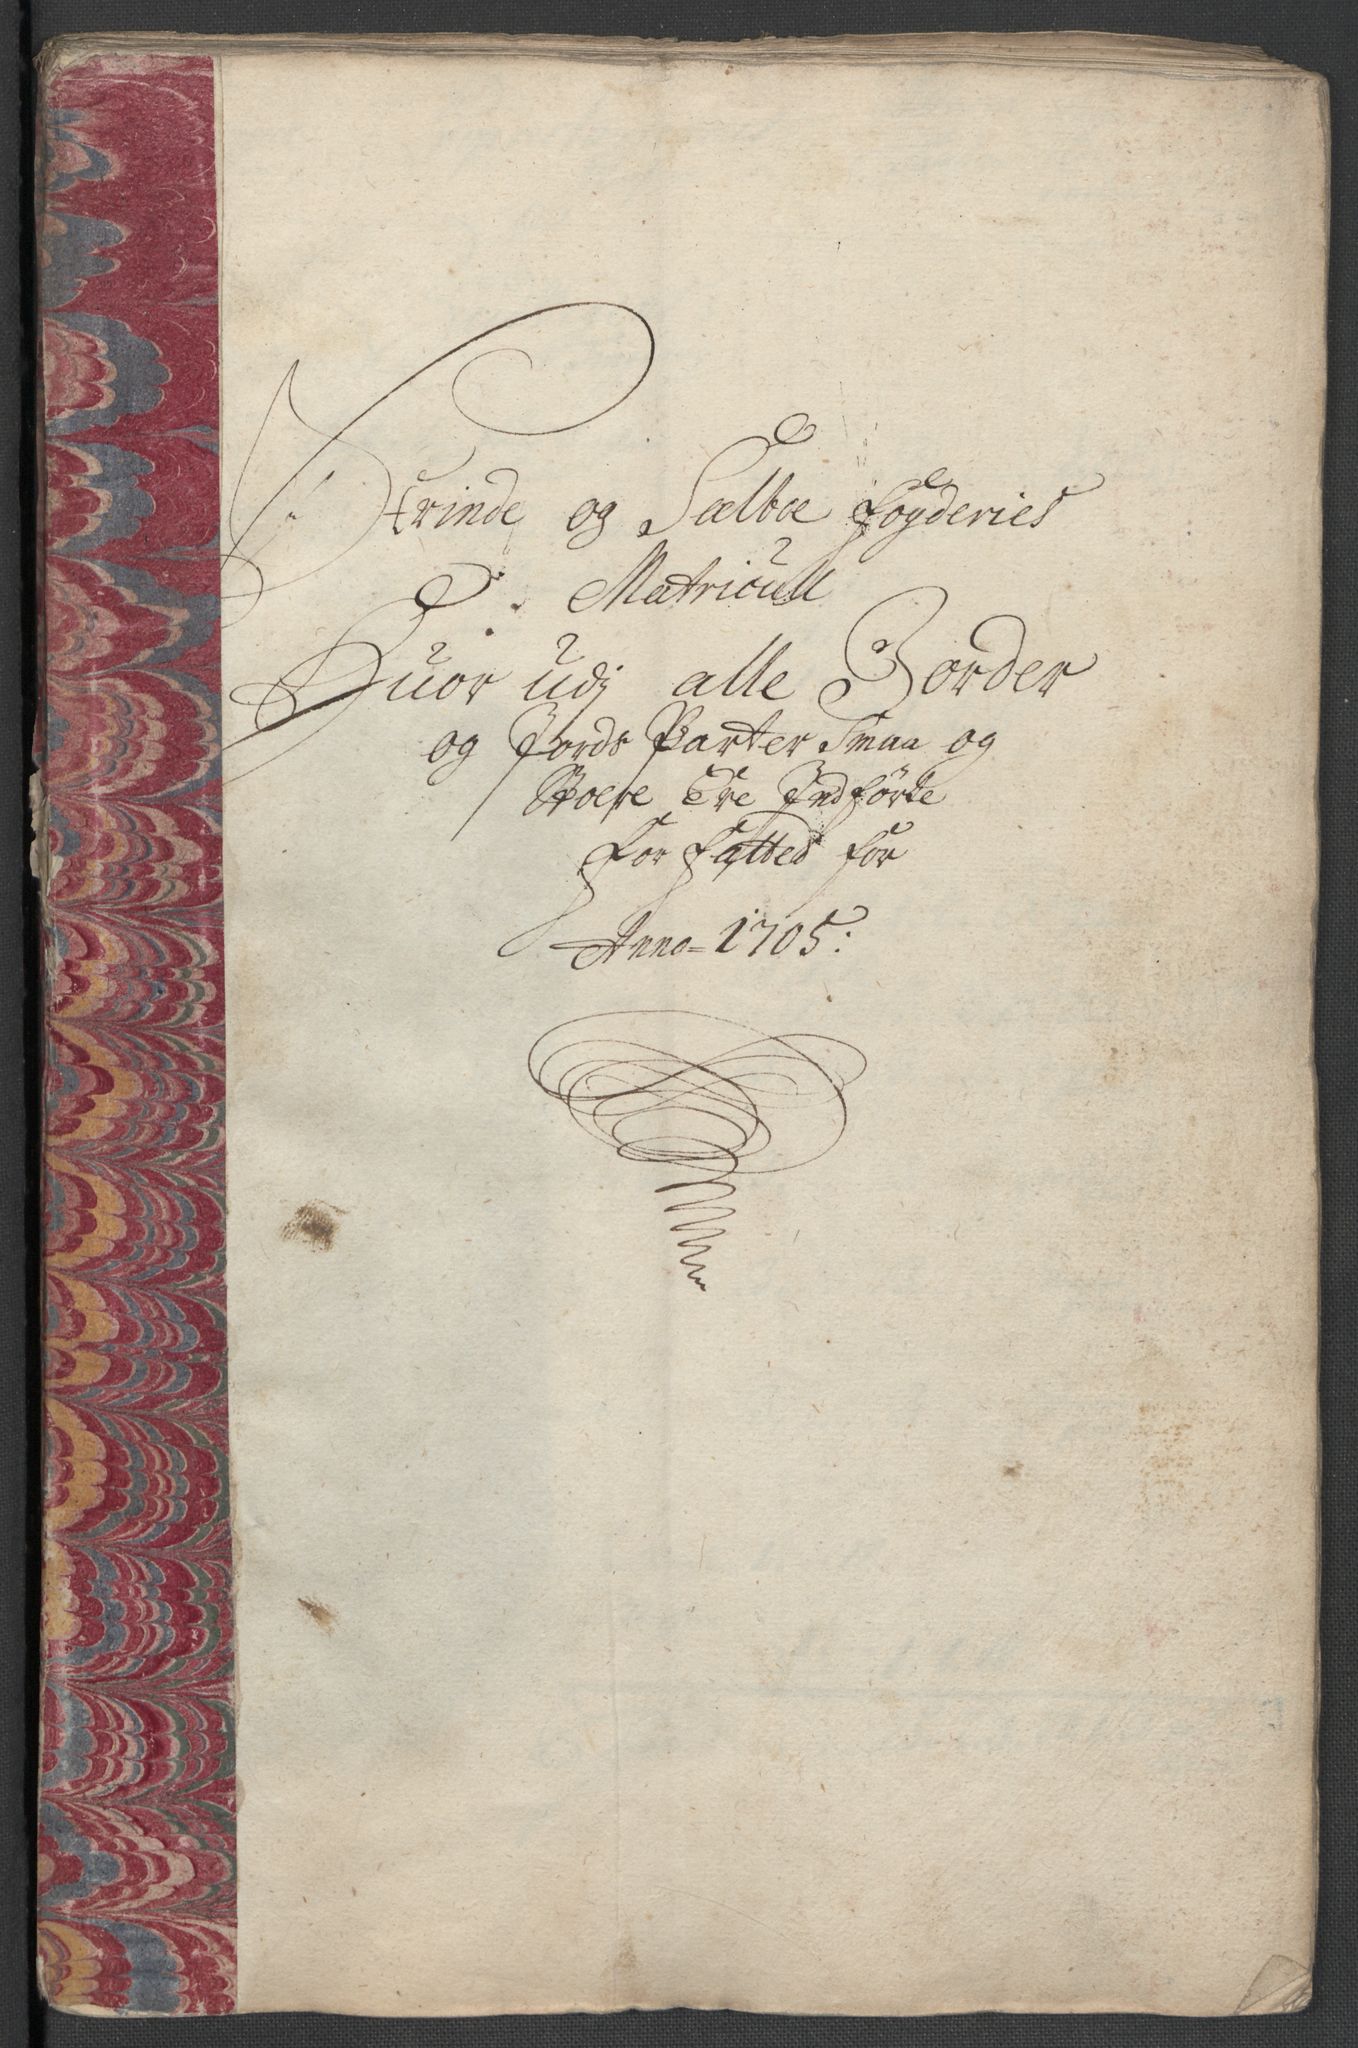 Strinde og Sælboe fogderies
Matricull
Huor udj alle Gorder
og Jords Parter Smaa og
Stoere Ere Indförte
forfatted for
Anno= 1705: